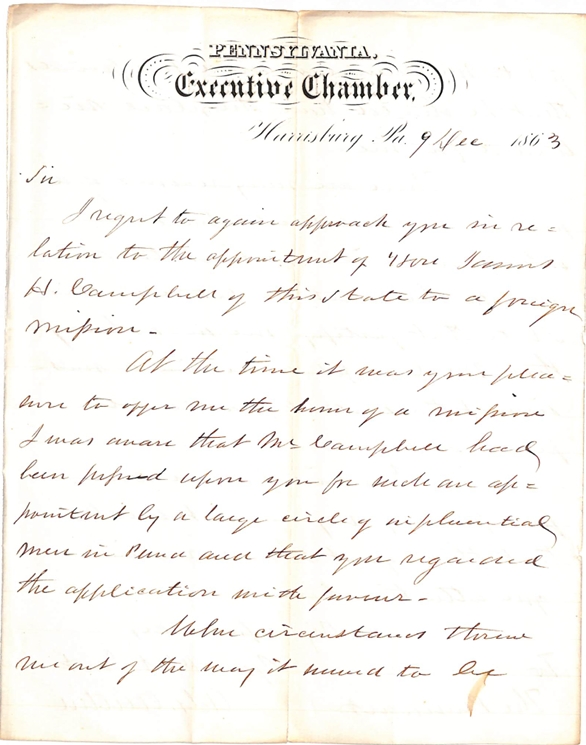 PENNSYLVANIA.
Executive Chamber,
Harrisburg Pa. 9 Dec 1863
Sir
I regret to again approach you in re=
lation to the appointment of Hon James
H. Campbell of this State to a foreign
mission -
At the time it was your plea=
sure to offer me the honor of a mission
I was aware that Mr Campbell had
been pressed upon you for such an ap=
pointment by a large circle of influential
men in Penna and that you regarded
the application with favour -
When circumstances threw
me out of the way it seemed to be